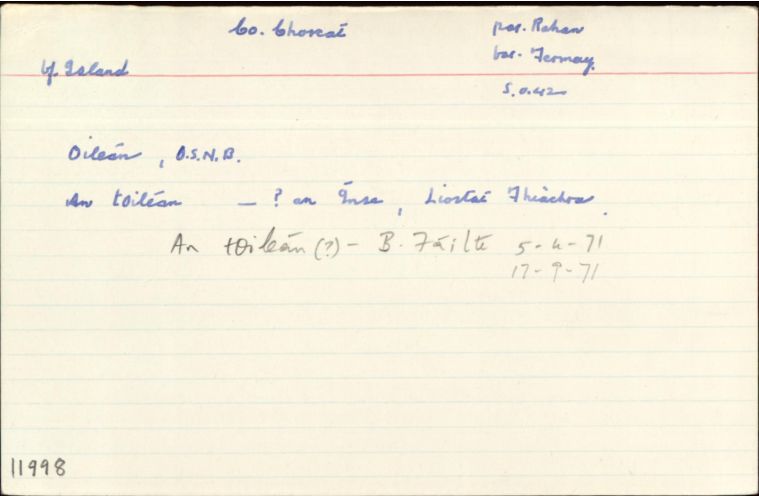 Co. Chorcaí
par. Rahan
bar. Fermoy
bf. Island
S.O. 42
Oileán, O.S.N.B.
An tOileán — ? an Ínse, Liostaí Fhiachra.
An tOileán (?) - B. Fáilte 5-4-71
17-9-71
11998